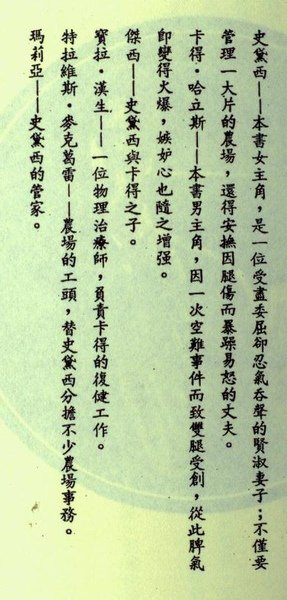 史黛西——本書女主角，是一位受盡委屈卻忍氣吞聲的賢淑妻子；不僅要
管理一大片的農場，還得安撫因腿傷而暴躁易怒的丈夫。
卡得·哈立斯——本書男主角，因一次空難事件而致雙腿受創，從此脾氣
即變得火爆，嫉妒心也隨之增强。
傑西——史黛西與卡得之子。
寶拉·漢生——一位物理治療師，負責卡得的復健工作。
特拉維斯·麥克葛雷——農場的工頭，替史黛西分擔不少農場事務。
瑪莉亞——史黛西的管家。